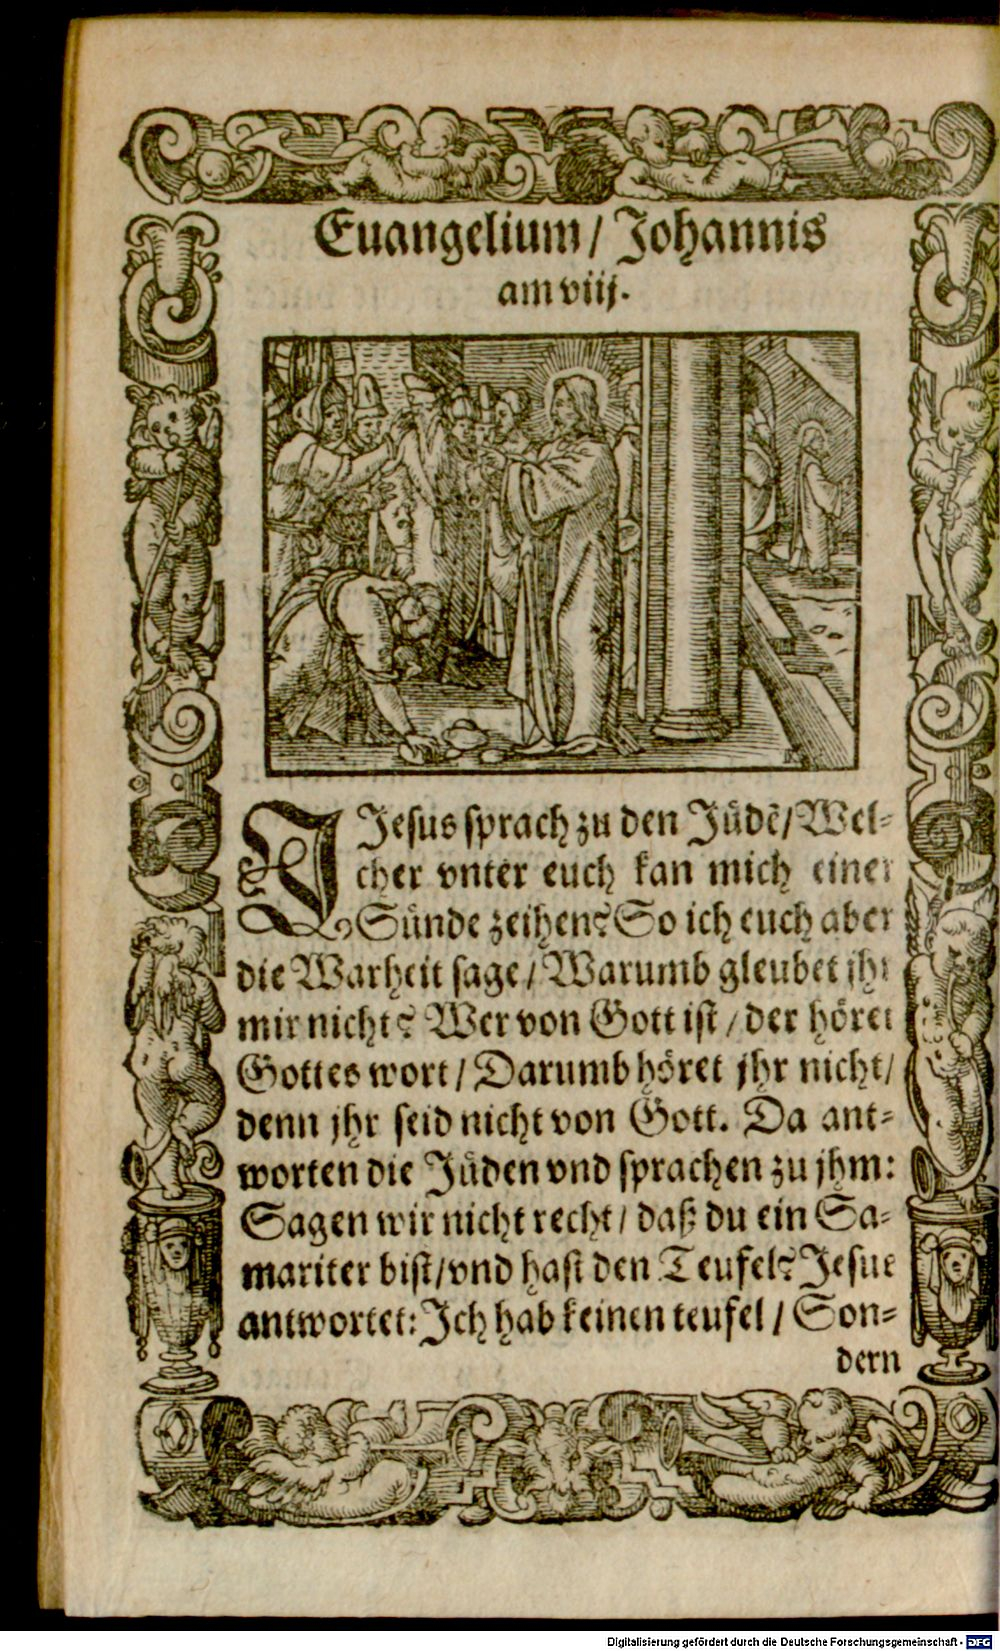 Euangelium / Johannis
am viij.
JEsus sprach zu den Jüdē / Wel-
cher vnter euch kan mich einer
Sünde zeihen? So ich euch aber
die Warheit sage / Warumb gleubet jhr
mir nicht? Wer von Gott ist / der höret
Gottes wort / Darumb höret jhr nicht /
denn jhr seid nicht von Gott. Da ant-
worten die Jüden vnd sprachen zu jhm:
Sagen wir nicht recht / daß du ein Sa-
mariter bist / vnd hast den Teufel? Jesus
antwortet: Ich hab keinen teufel / Son-
dern
Digitalisierung gefördert durch die Deutsche Forschungsgemeinschaft - DFG